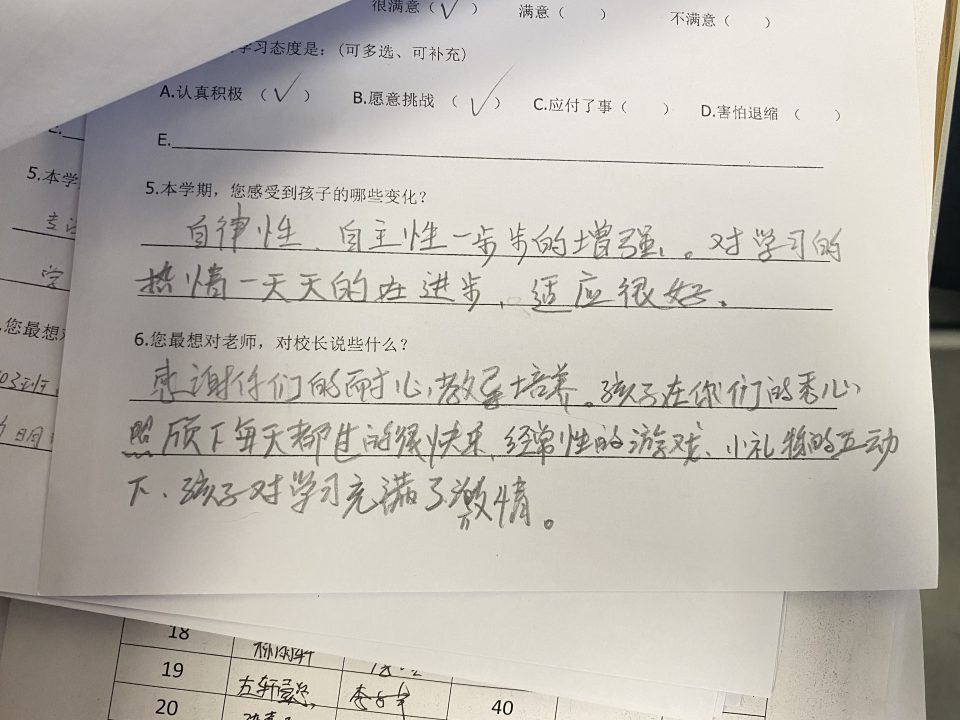 很满意（√） 满意（ ） 不满意（ ）
学习态度是：(可多选、可补充)
A.认真积极 （√） B.愿意挑战 （√） C.应付了事（ ） D.害怕退缩 （ ）
E.
5.本学期，您感受到孩子的哪些变化？
自律性、自主性一步步的增强。对学习的
热情一天天的在进步、适应很好。
6.您最想对老师，对校长说些什么？
感谢你们的耐心教导培养。孩子在你们的悉心
照顾下每天都过的很快乐，经常性的游戏、小礼物的互动
下、孩子对学习充满了激情。
5.本学
您最想
18
19
20 40